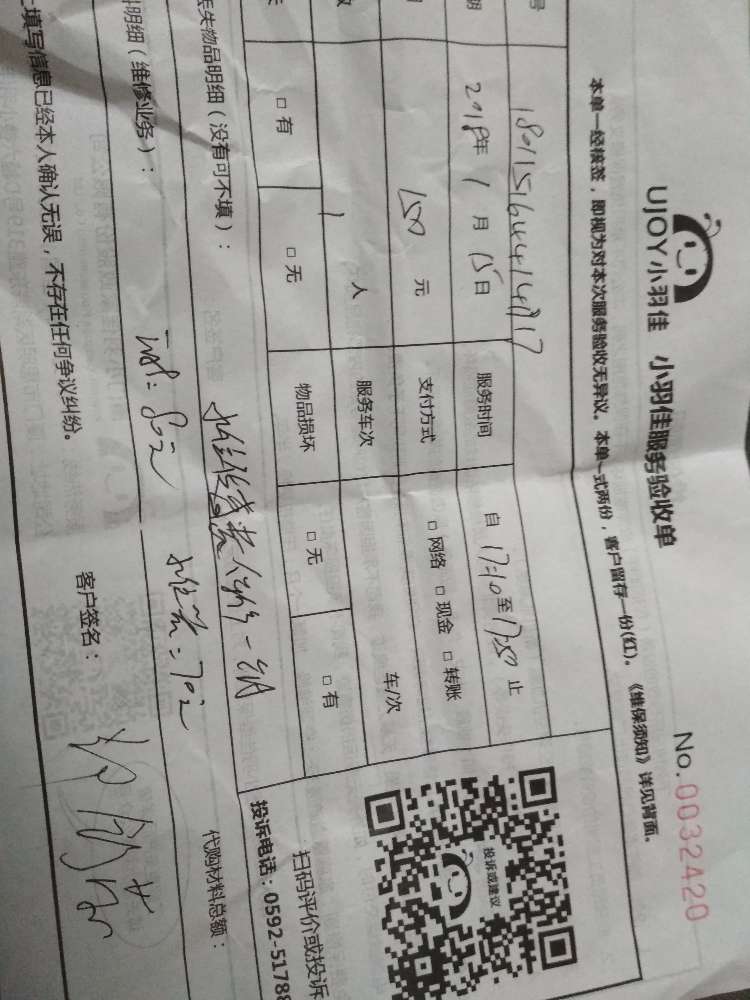 UJOY小羽佳 小羽佳服务验收单
No.0032420
本单一经核签，即视为对本次服务验收无异议。本单一式两份，客户留存一份(红)。《维保须知》详见背面。
号 18011516444147817
期 2018年 1 月 15日 服务时间 自 17:10 至 17:50 止
150 元 支付方式 □ 网络 □ 现金 □ 转账
数 1 人 服务车次 车/次
□ 有 □ 无 物品损坏 □ 无 □ 有
丢失物品明细（没有可不填）：
料明细（维修业务）：
投诉或建议
扫码评价或投诉
投诉电话：0592-51788
代购材料总额：
上填写信息已经本人确认无误，不存在任何争议纠纷。
客户签名：